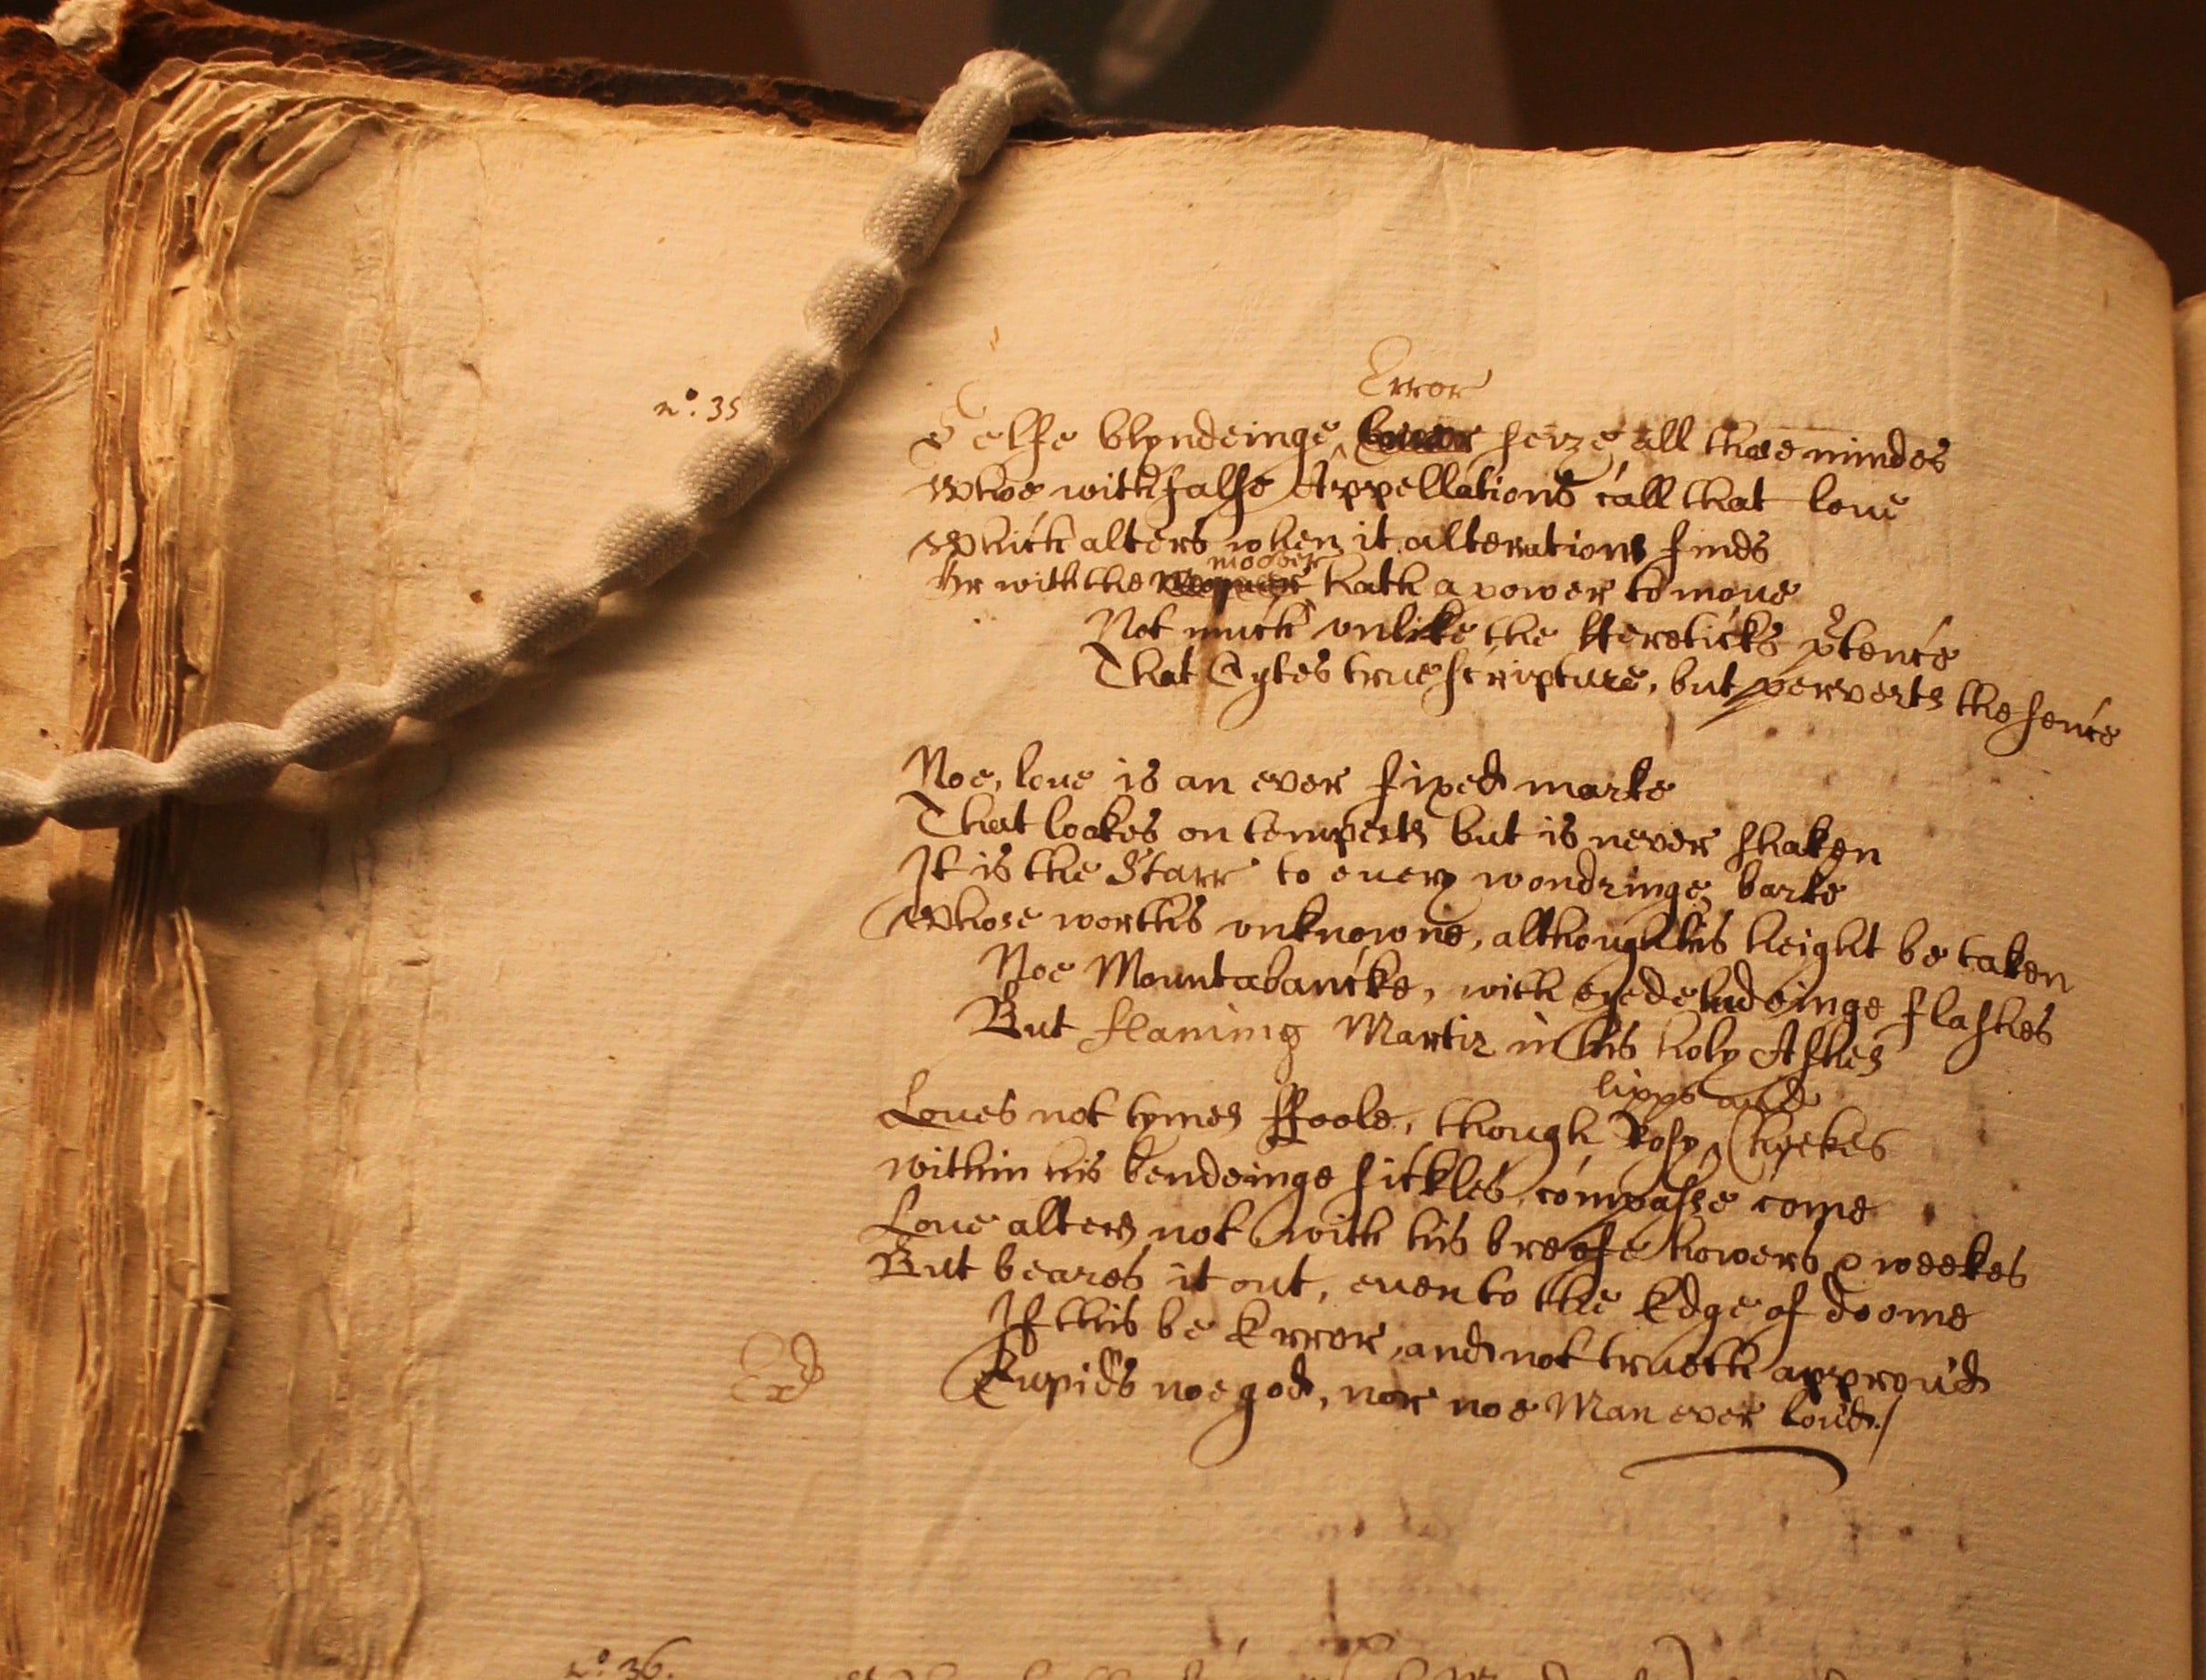 n°. 35
Error
Selfe blyndeinge seize all those mindes
Whoe with false Appellations call that loue
Which alters when it alterations finds
moover
Or with the hath a power to moue
Not much vnlike the Hereticks ptence
That Cytes true scripture, but perverts the sence
Noe, loue is an ever fixed marke
That lookes on tempests but is never shaken
It is the Starr to euery wondringe barke
Whose worths vnknowne, although his height be taken
Noe Mountabancke, with eyedeludeinge flashes
But flaming Martir in his holy Ashes
lipps and
Loues not tymes ffoole, though Rosy Cheekes
within his bendeinge sickles compasse come
Loue alters not with his breefe howers & weekes
But beares it out, euen to the Edge of doome
If this be Error, and not trueth approu'd
Ex
Cupids noe god, nor noe Man ever lou'd./
n°. 36.